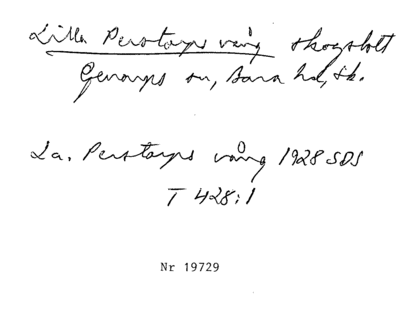 Lilla Perstorps vång skogslott
Genarps sn, Bara hd, Sk.
La. Perstorps vång 1928 SDS
T 428:1
Nr 19729